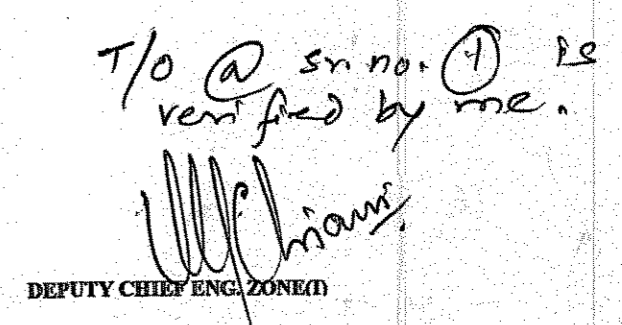 T/o @ sr. no. 1 is
verified by me.
DEPUTY CHIEF ENG. ZONE(I)